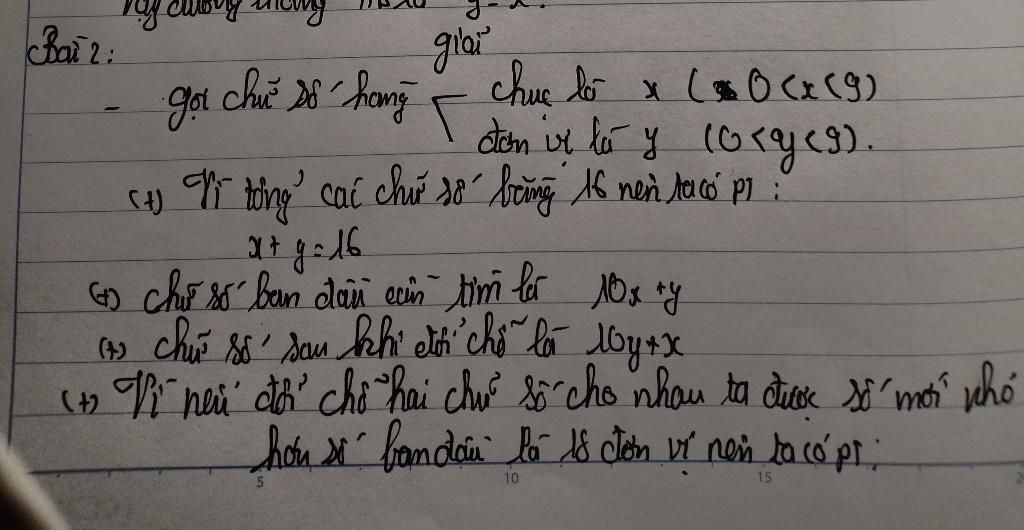 Vậy đường thẳng y=x.
Bài 2:
giải
- gọi chữ số hàng chục là x (0<x<9)
đơn vị là y (0<y<9).
(+) Vì tổng các chữ số bằng 16 nên ta có pt:
x+y=16
(+) chữ số ban đầu cần tìm là 10x+y
(+) chữ số sau khi đổi chỗ là 10y+x
(+) Vì nếu đổi chỗ hai chữ số cho nhau ta được số mới nhỏ
hơn số ban đầu là 18 đơn vị nên ta có pt:
5 10 15